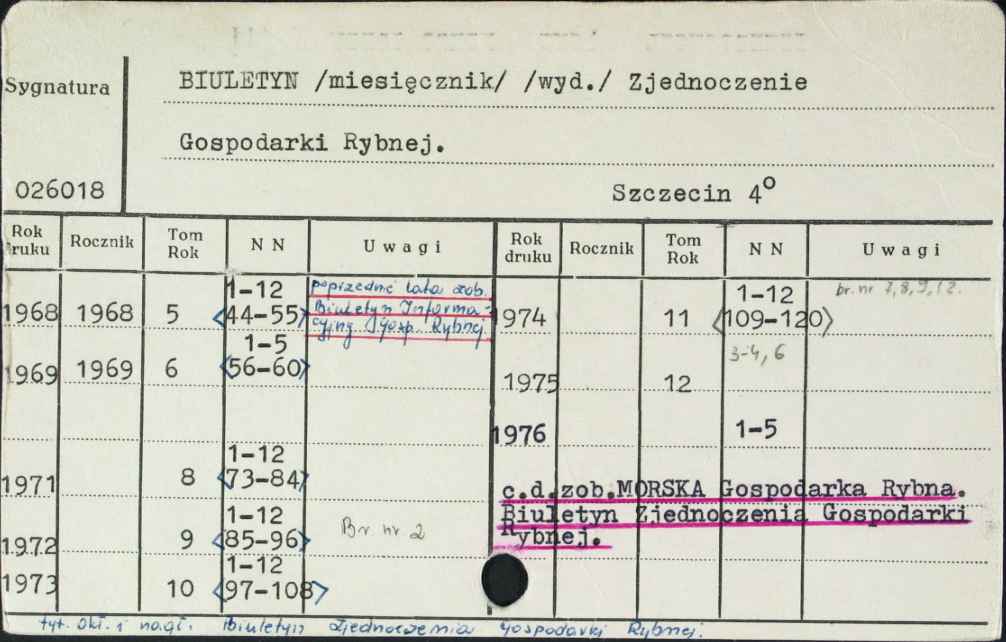 Sygnatura
BIULETYN /miesięcznik/ /wyd./ Zjednoczenie
Gospodarki Rybnej.
026018
Szczecin 4°
Rok druku Rocznik Tom Rok N N Uwagi Rok druku Rocznik Tom Rok N N Uwagi
1968 1968 5 1-12 <44-55> poprzednie lata zob.
Biuletyn Informa-
cyjny Gosp. Rybnej
1969 1969 6 1-5 <56-60>
1971 8 1-12 <73-84>
1972 9 1-12 <85-96> Br nr 2
1973 10 1-12 <97-108>
1974 11 1-12 <109-120> br. nr 7,8,9,12.
1975 12 3-4, 6
1976 1-5
c.d.zob.MORSKA Gospodarka Rybna.
Biuletyn Zjednoczenia Gospodarki
Rybnej.
tyt. okł. i nagł. Biuletyn Zjednoczenia Gospodarki Rybnej.